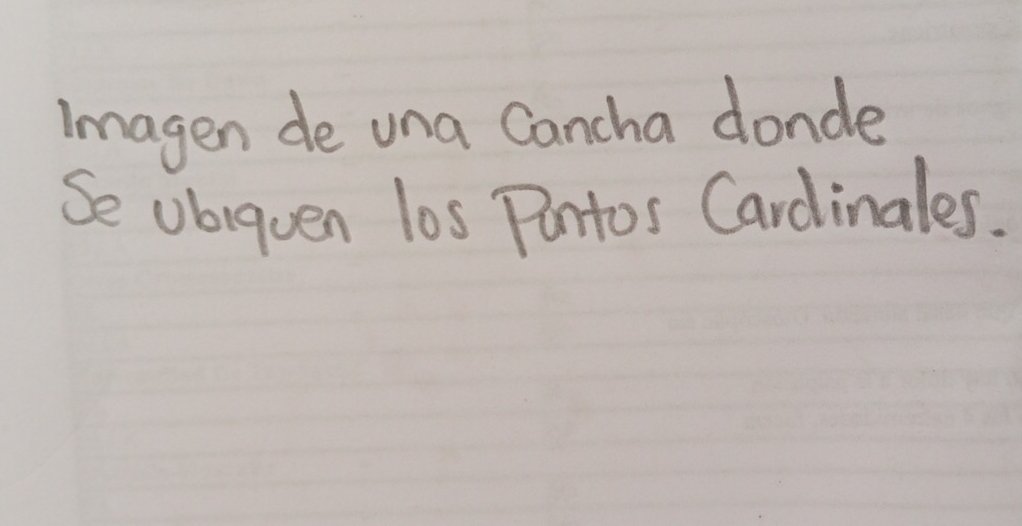 Imagen de una Cancha donde
Se ubiquen los Puntos Cardinales.